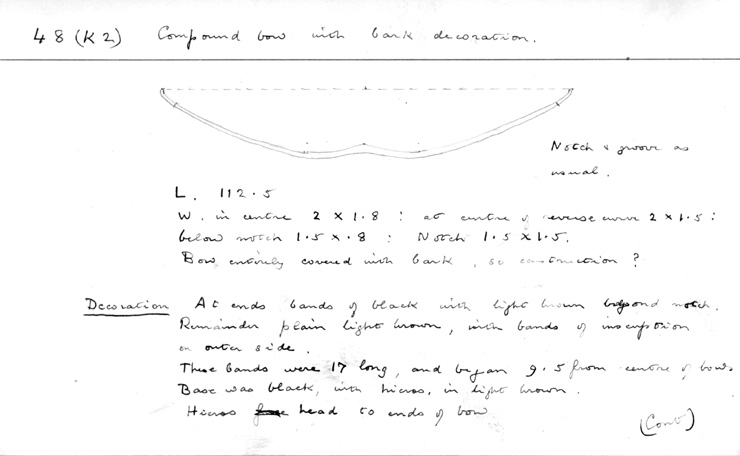 48 (K2) Compound bow with bark decoration.
Notch & groove as
usual.
L. 112.5
W. in centre 2 x 1.8 : at centre of reverse curve 2 x 1.5 :
below notch 1.5 x .8 : Notch 1.5 x 1.5.
Bow entirely covered with bark, so construction ?
Decoration At ends bands of black with light brown beyond notch.
Remainder plain light brown, with bands of inscription
on outer side.
These bands were 17 long, and began 9.5 from centre of bow.
Base was black, with hieros. in light brown.
Hieros head to ends of bow
(Cont)